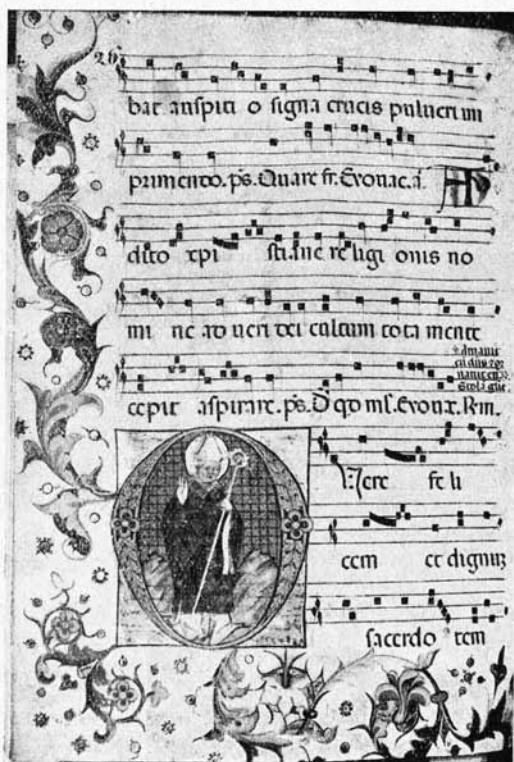 bat auspiti o signa crucis pulueri im
primendo. ps. Quare fr. Evovae. a. A
dito xpi sti ane re ligi onis no
mi ne ad ueri dei cultum tota mente
cepit aspirare. ps. D qd ml. Evovae.
ere fe li
cem et dignuz
sacerdo tem